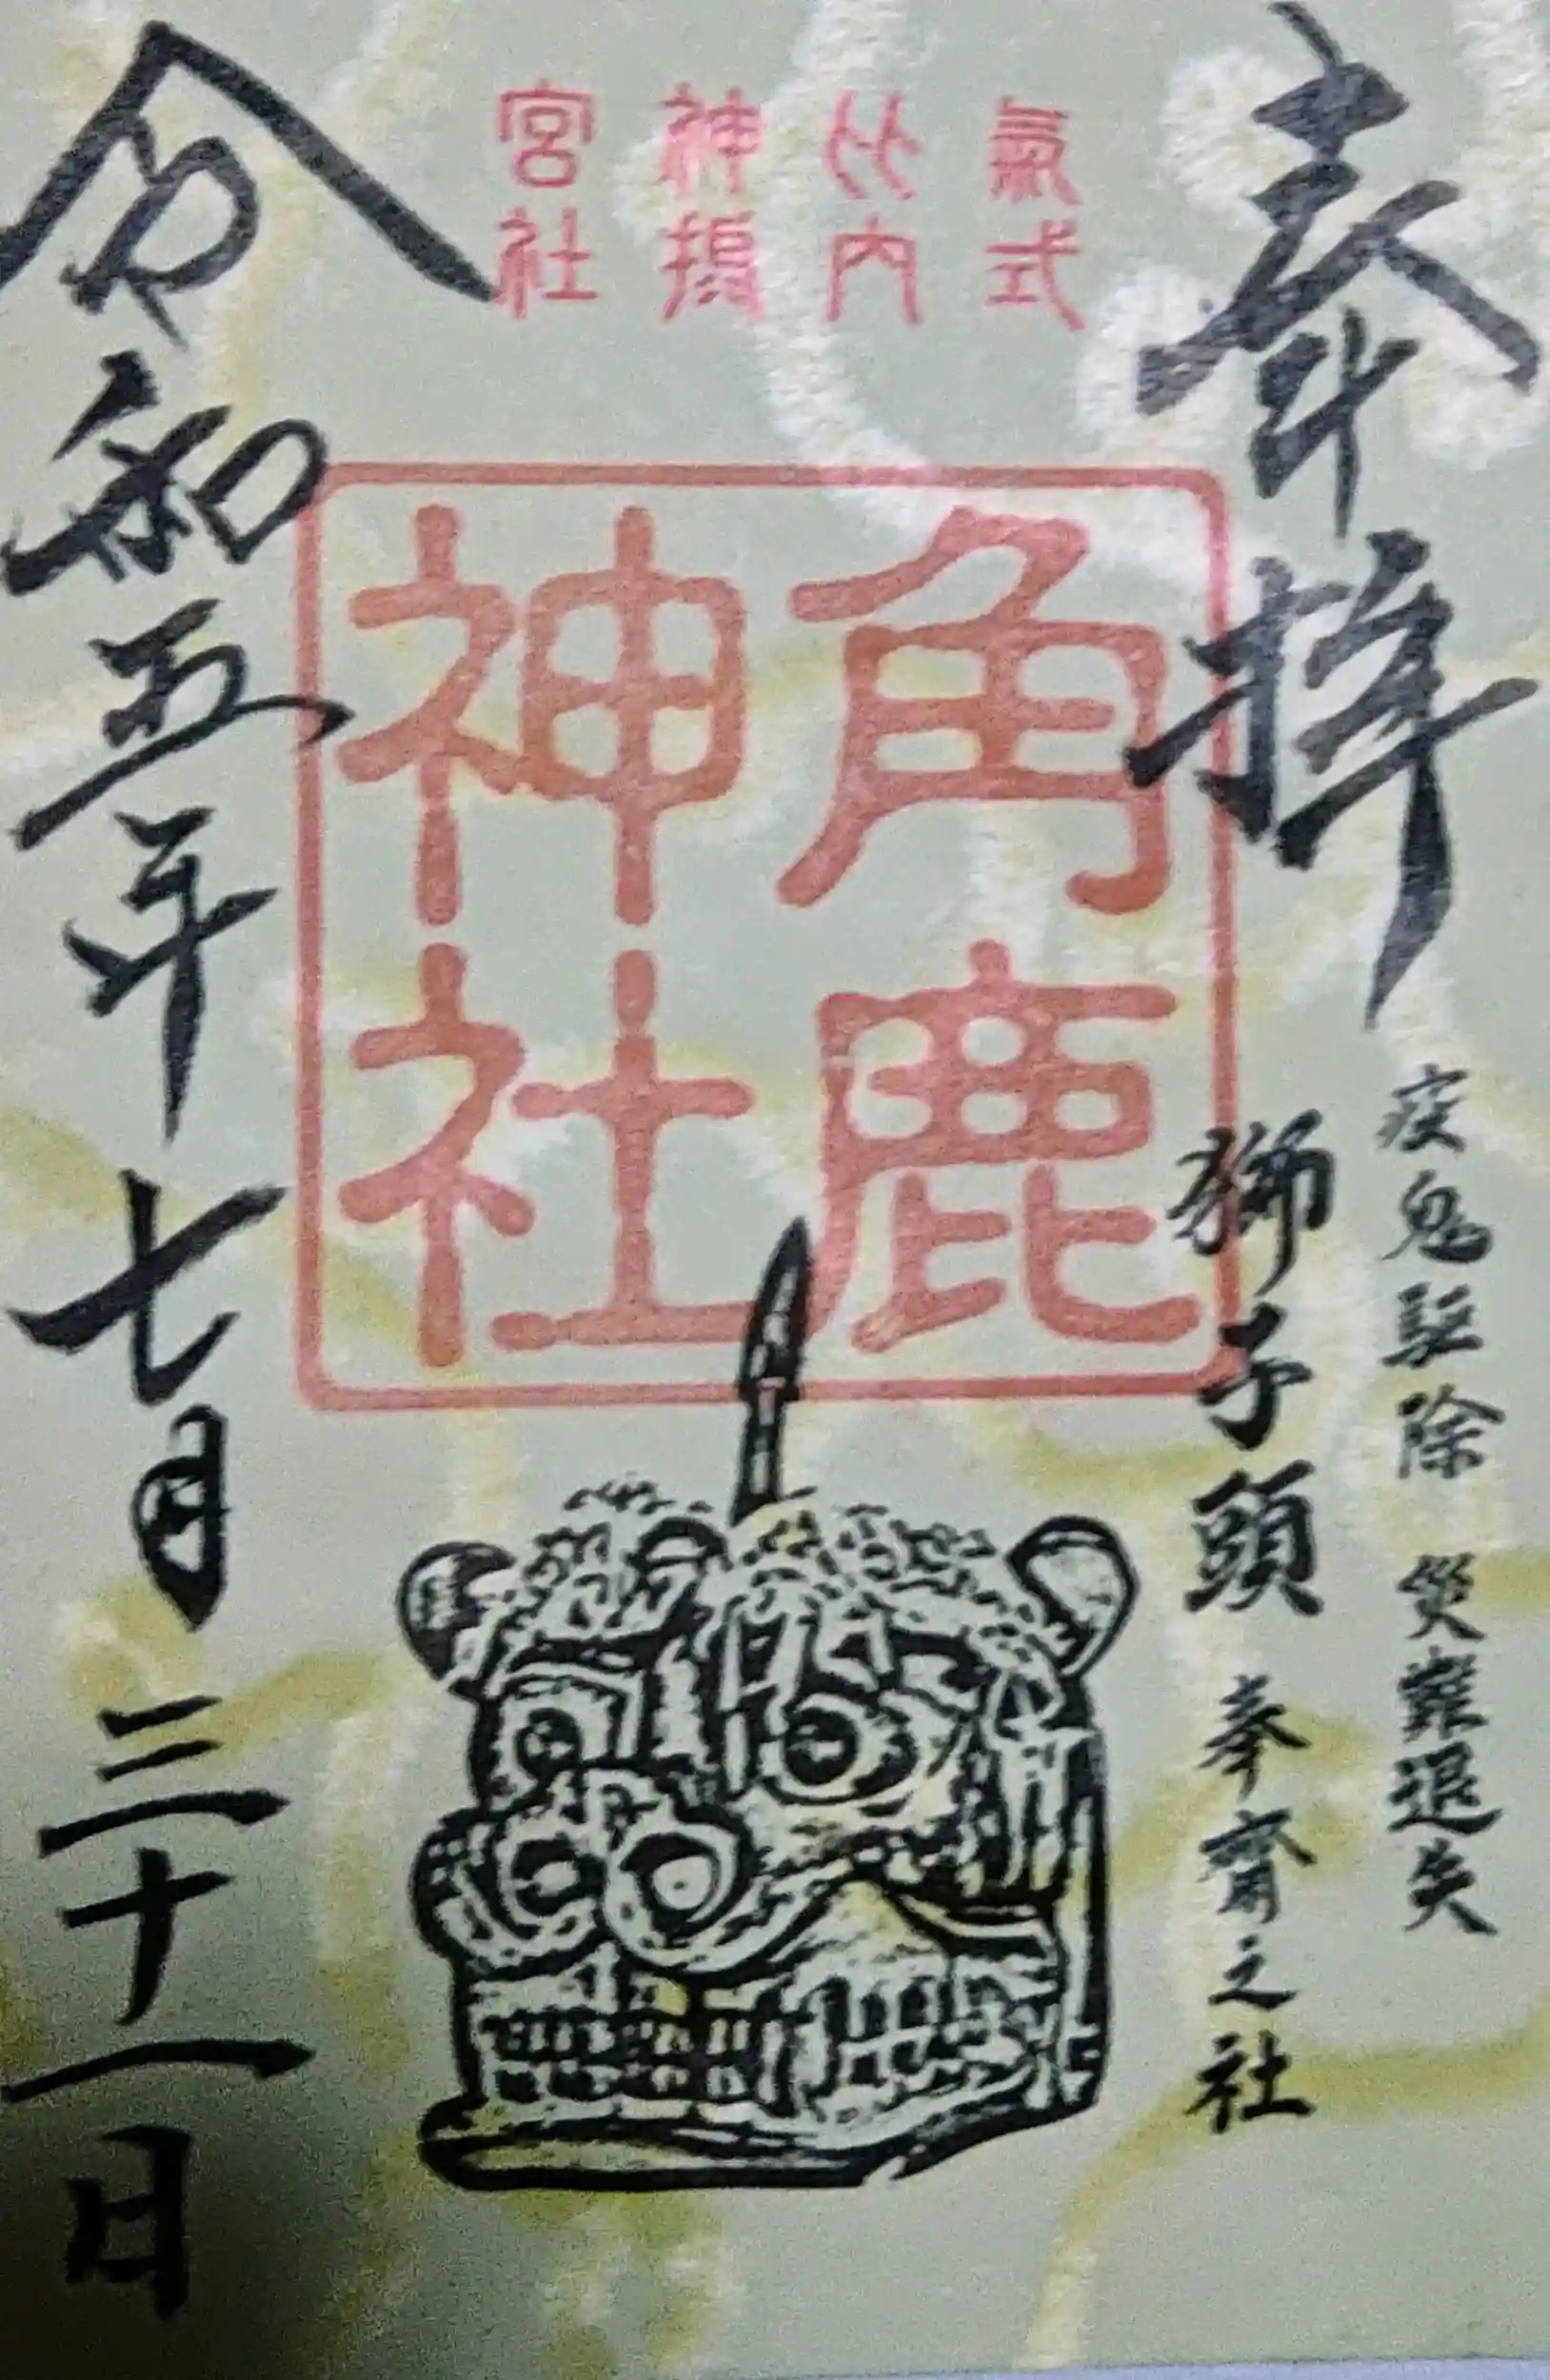 奉拝
疫鬼駈除 災難退失
獅子頭 奉齋之社
氣比神宮
式内攝社
角鹿
神社
令和五年七月三十一日